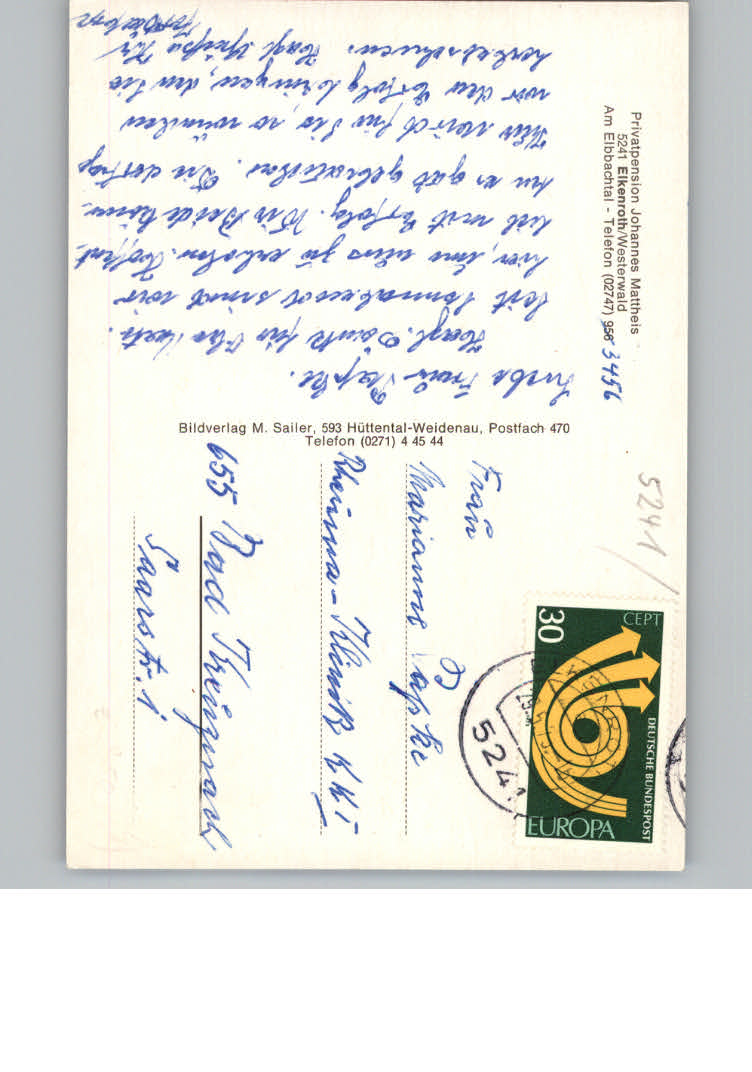 Privatpension Johannes Mattheis
5241 Elkenroth/Westerwald
Am Elbbachtal - Telefon (02747) 956 3456
Liebe Frau Papke.
Herzl. Dank für Ihre Karte.
Seit Sonnabend sind wir
hier, um uns zu erholen. Hoffent-
lich mit Erfolg. Wir Beide können
es gut gebrauchen. Die
Kur für Sie, so wünschen
wir den Erfolg bringen, den Sie
herbeisehnen. Herzl. Grüße Ihr
Bildverlag M. Sailer, 593 Hüttental-Weidenau, Postfach 470
Telefon (0271) 4 45 44
5241
Frau
Marianne Papke
Rheuma-Klinik
655 Bad Kreuznach
Saarstr. 1
30
CEPT
DEUTSCHE BUNDESPOST
EUROPA
5241